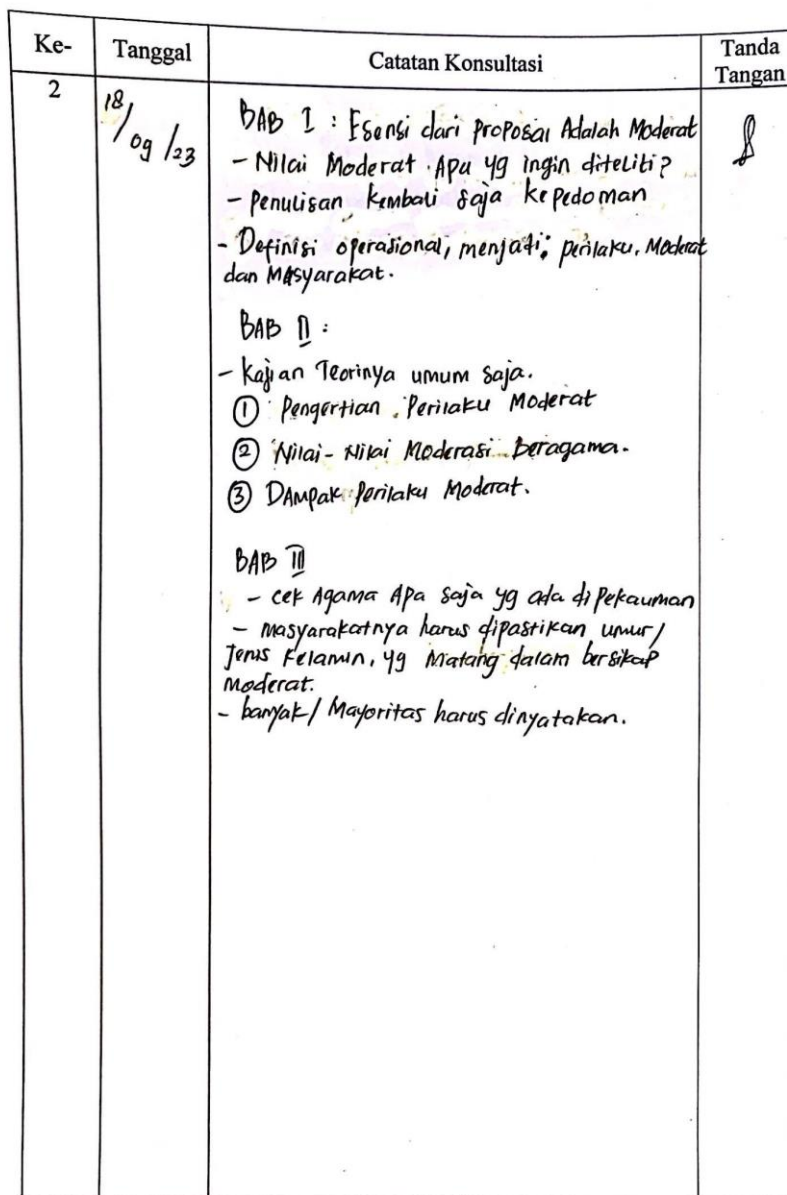 Ke-
Tanggal
Catatan Konsultasi
Tanda
Tangan
2
18/09/23
BAB I : Esensi dari Proposal Adalah Moderat
- Nilai Moderat Apa yg ingin diteliti?
- Penulisan kembali saja ke pedoman
- Definisi operasional, menjadi; perilaku, Moderat
dan MAsyarakat.
BAB II :
- Kajian Teorinya umum saja.
① Pengertian Perilaku Moderat
② Nilai-Nilai Moderasi Beragama.
③ DAmpak Perilaku Moderat.
BAB III
- cek Agama Apa saja yg ada di Pekauman
- Masyarakatnya harus dipastikan umur/
Jenis Kelamin, yg Matang dalam bersikap
Moderat.
- banyak/ Mayoritas harus dinyatakan.